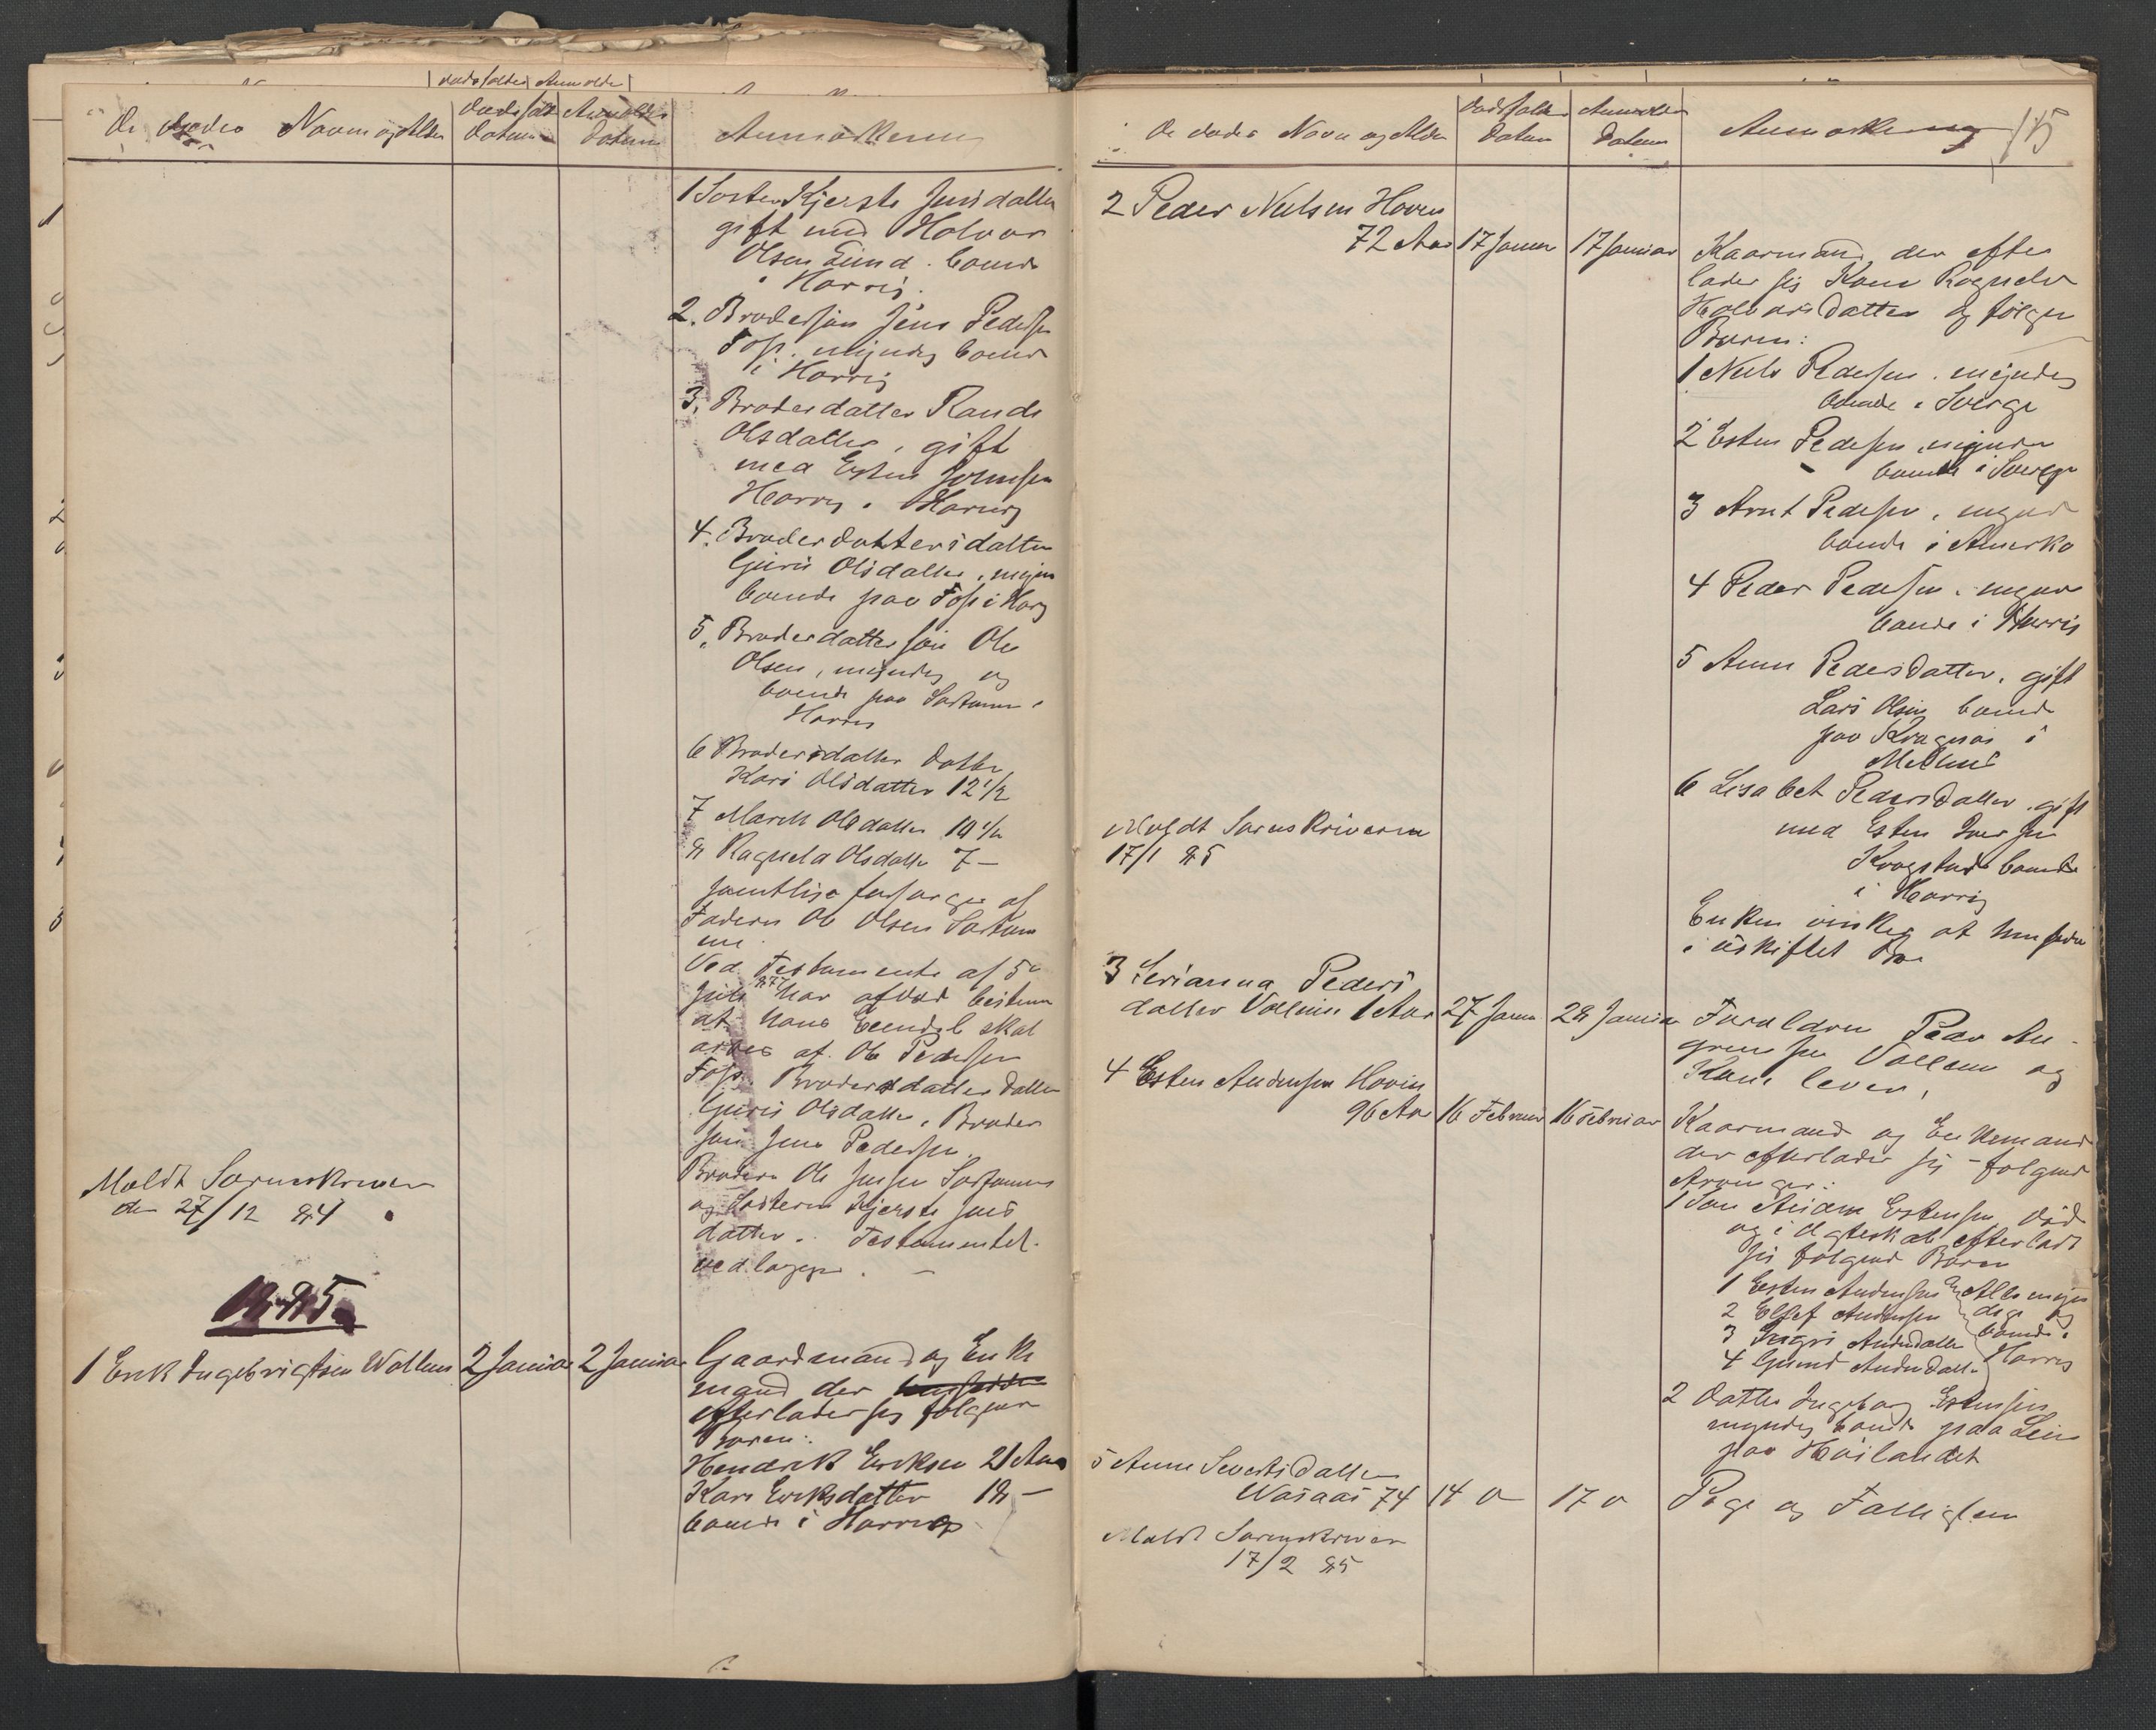 De dødes Navn og Alder
dødsfald datum
Anmeldes datum
Anmærkning
1 Søster Kjersti Jensdatter
gift med Halvor
Olsen Eiind boende
i Horrig.
2. Brodersøn Jens Pedersen
Foss. myndig boende
i Horrig
3. Broderdatter Randi
Olsdatter, gift
med Esten
Horrig. Horrig
4. Broderdattersdatter
Guri Olsdatter, myn
boende paa Foss i Horg
5. Broderdattersøn Ole
Olsen, myndig og
boende paa
Horrig
6 Brodersdatter datter
Kari Olsdatter 12 1/2
7 Marit Olsdatter 10 1/2
8 Ragnela Olsdatter 7 -
samtlige forsørges af
Faderen Ole Olsen
Ved Testamente af 5te
Juli 877 har afdød bestemt
at hans Eiendele skal
arves af. Ole Pedersen
Foss. Brodersdatter datter
Guri Olsdatter, Broder
søn Jens Pedersen.
Broderen Ole Jensen
og Søsteren Kjersti Jens
datter. Testamentet
vedlægges. -
Meldt Sorenskriveren
den 27/12 84
1885
1 Erik Ingebrigtsen Wollum
2 Januar
2 Januar
Gaardmand og Enke
mand der
efterlader sig følgende
Børen:
Hendrik Eriksen 21 Aar
Kari Eriksdatter 18 -
boende i Horrig
De dødes Navn og Alder
dødsfalds Datum
Anmeldes Datum
Anmærkning
115
2 Peder Nielsen Hoven
72 Aar
17 Januar
17 Januar
Kaarmand der efter
lader sig Kone Ragnela
Halvorsdatter og følgen
Børen:
1 Niels Pedersen. myndig
boende i Sverge
2 Esten Pedersen, myndi
boende i Sverge
3 Arnt Pedersen, mynd
boende i Amerka
4 Peder Pedersen. mynd
boende i Horrig
5 Anne Pedersdatter. gift
Lars Olsen boende
paa Kragnæs i
Melhus
6 Lisabet Pedersdatter. gift
med Esten Iversen
Krogstad boende
i Horrig
Enken ønsker at hensidde
i uskiftet Bo
Meldt Sorenskriveren
17/1 85
3 Serianna Peders
datter Vollum 1 Aar
27 Janu
28 Januar
Forældren Peder An
Vollum og
Kone lever,
4 Esten Andersen Hovin
96 Aar
16 Februar
16 Februar
Kaarmand og Enkemand
der efterlader sig følgend
Arvinger:
1 Søn Anders Estensen død
og i Egteskab efterladt
sig følgend Børen
1 Esten Andersen
2 Ellef Andersen
3 Ingri Andersdatter
4 Gunild Andersdatter
Alle myn
dige og
boende i
Horrig
2 Datter Ingeborg Estensen
myndig boende paa Lein
paa Høilandet
5 Anne Sivertsdatter
Wasaas 74
14 "
17 "
Pige og Fattiglem
Meldt Sorenskriveren
17/2 85